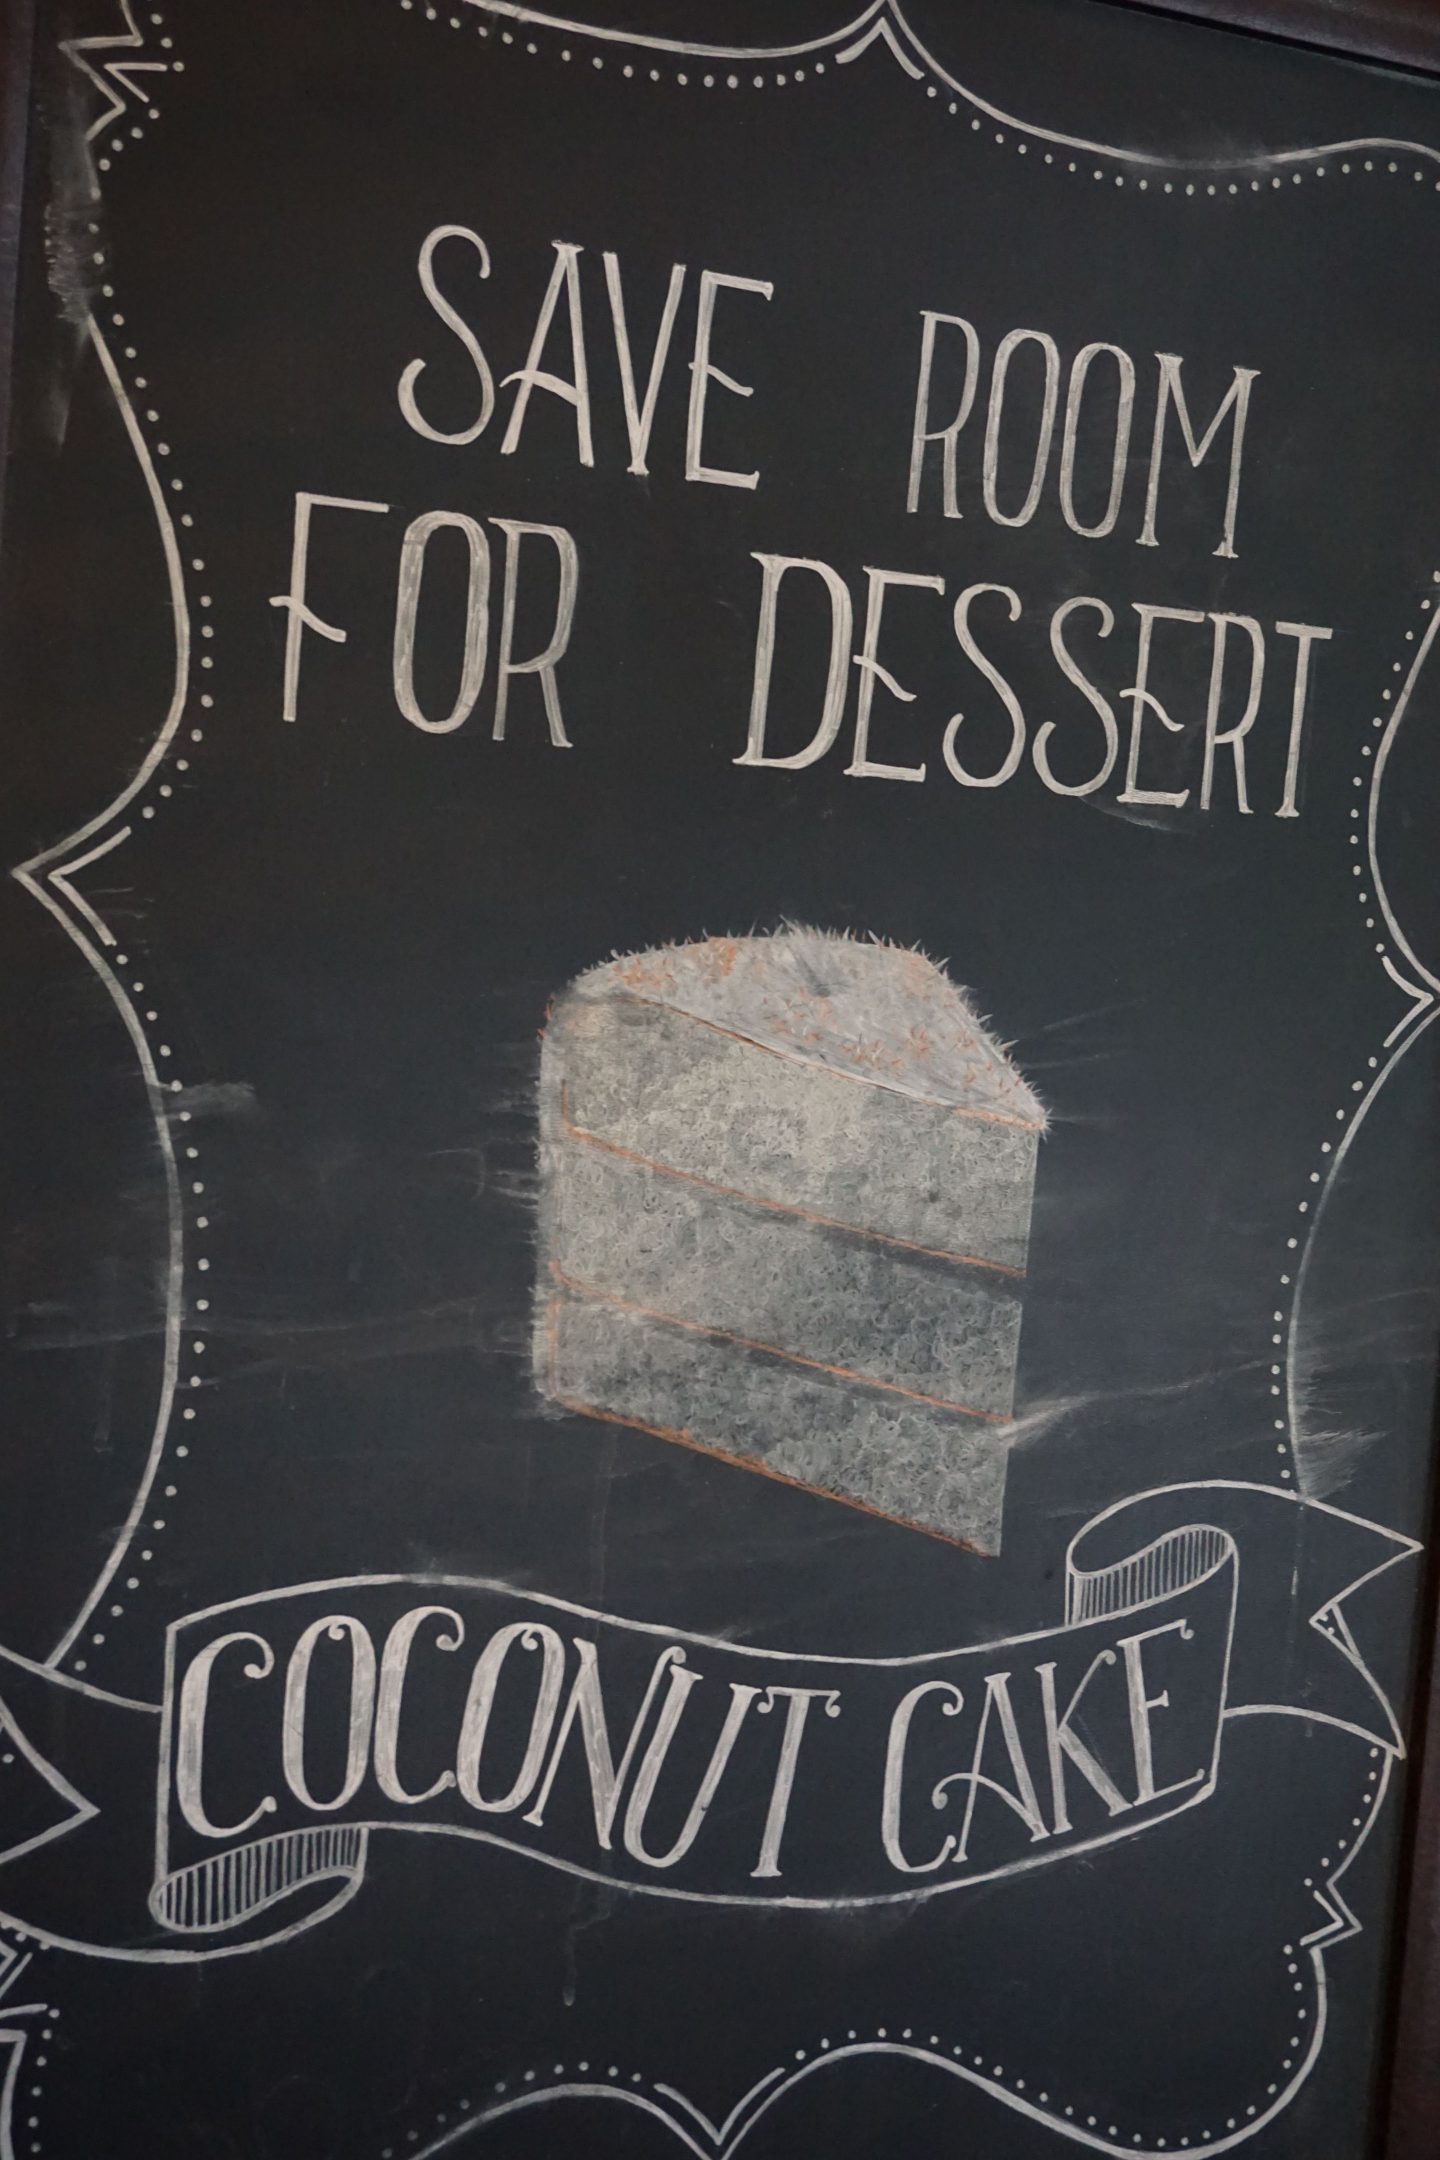 SAVE ROOM
FOR DESSERT
COCONUT CAKE